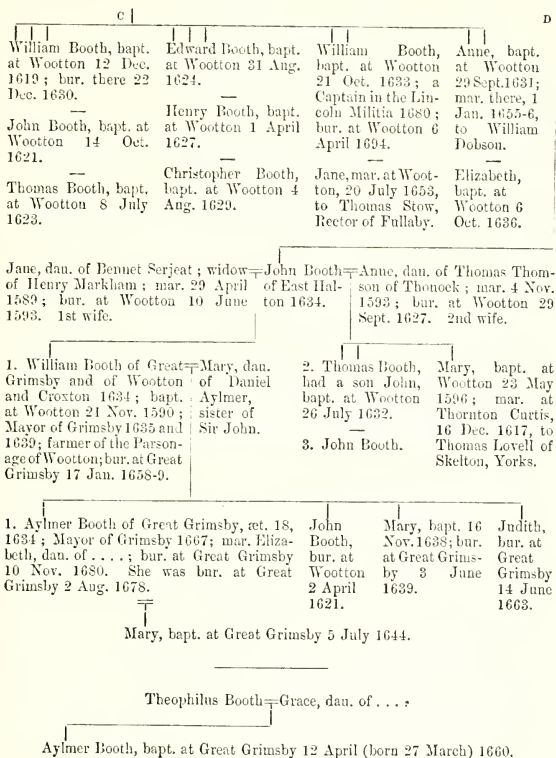 C D
William Booth, bapt.
at Wootton 12 Dec.
1619 ; bur. there 22
Dec. 1630.
—
John Booth, bapt. at
Wootton 14 Oct.
1621.
—
Thomas Booth, bapt.
at Wootton 8 July
1623.
Edward Booth, bapt.
at Wootton 31 Aug.
1624.
—
Henry Booth, bapt.
at Wootton 1 April
1627.
—
Christopher Booth,
bapt. at Wootton 4
Aug. 1629.
William Booth,
bapt. at Wootton
21 Oct. 1633 ; a
Captain in the Lin-
coln Militia 1680 ;
bur. at Wootton 6
April 1694.
—
Jane, mar. at Woot-
ton, 20 July 1653,
to Thomas Stow,
Rector of Fullaby.
Anne, bapt.
at Wootton
29 Sept. 1631;
mar. there, 1
Jan. 1655-6,
to William
Dobson.
—
Elizabeth,
bapt. at
Wootton 6
Oct. 1636.
Jane, dau. of Bennet Serjeat ; widow
of Henry Markham ; mar. 29 April
1589 ; bur. at Wootton 10 June
1593. 1st wife.
John Booth
of East Hal-
ton 1634.
Anne, dau. of Thomas Thom-
son of Thonock ; mar. 4 Nov.
1593 ; bur. at Wootton 29
Sept. 1627. 2nd wife.
1. William Booth of Great
Grimsby and of Wootton
and Croxton 1634 ; bapt.
at Wootton 21 Nov. 1590 ;
Mayor of Grimsby 1635 and
1639; farmer of the Parson-
age of Wootton; bur. at Great
Grimsby 17 Jan. 1658-9.
Mary, dau.
of Daniel
Aylmer,
sister of
Sir John.
2. Thomas Booth,
had a son John,
bapt. at Wootton
26 July 1632.
—
3. John Booth.
Mary, bapt. at
Wootton 23 May
1596 ; mar. at
Thornton Curtis,
16 Dec. 1617, to
Thomas Lovell of
Skelton, Yorks.
1. Aylmer Booth of Great Grimsby, æt. 18,
1634 ; Mayor of Grimsby 1667; mar. Eliza-
beth, dau. of . . . . ; bur. at Great Grimsby
10 Nov. 1680. She was bur. at Great
Grimsby 2 Aug. 1678.
John
Booth,
bur. at
Wootton
2 April
1621.
Mary, bapt. 16
Nov. 1638; bur.
at Great Grims-
by 3 June
1639.
Judith,
bur. at
Great
Grimsby
14 June
1663.
Mary, bapt. at Great Grimsby 5 July 1644.
Theophilus Booth Grace, dau. of . . . ?
Aylmer Booth, bapt. at Great Grimsby 12 April (born 27 March) 1660.